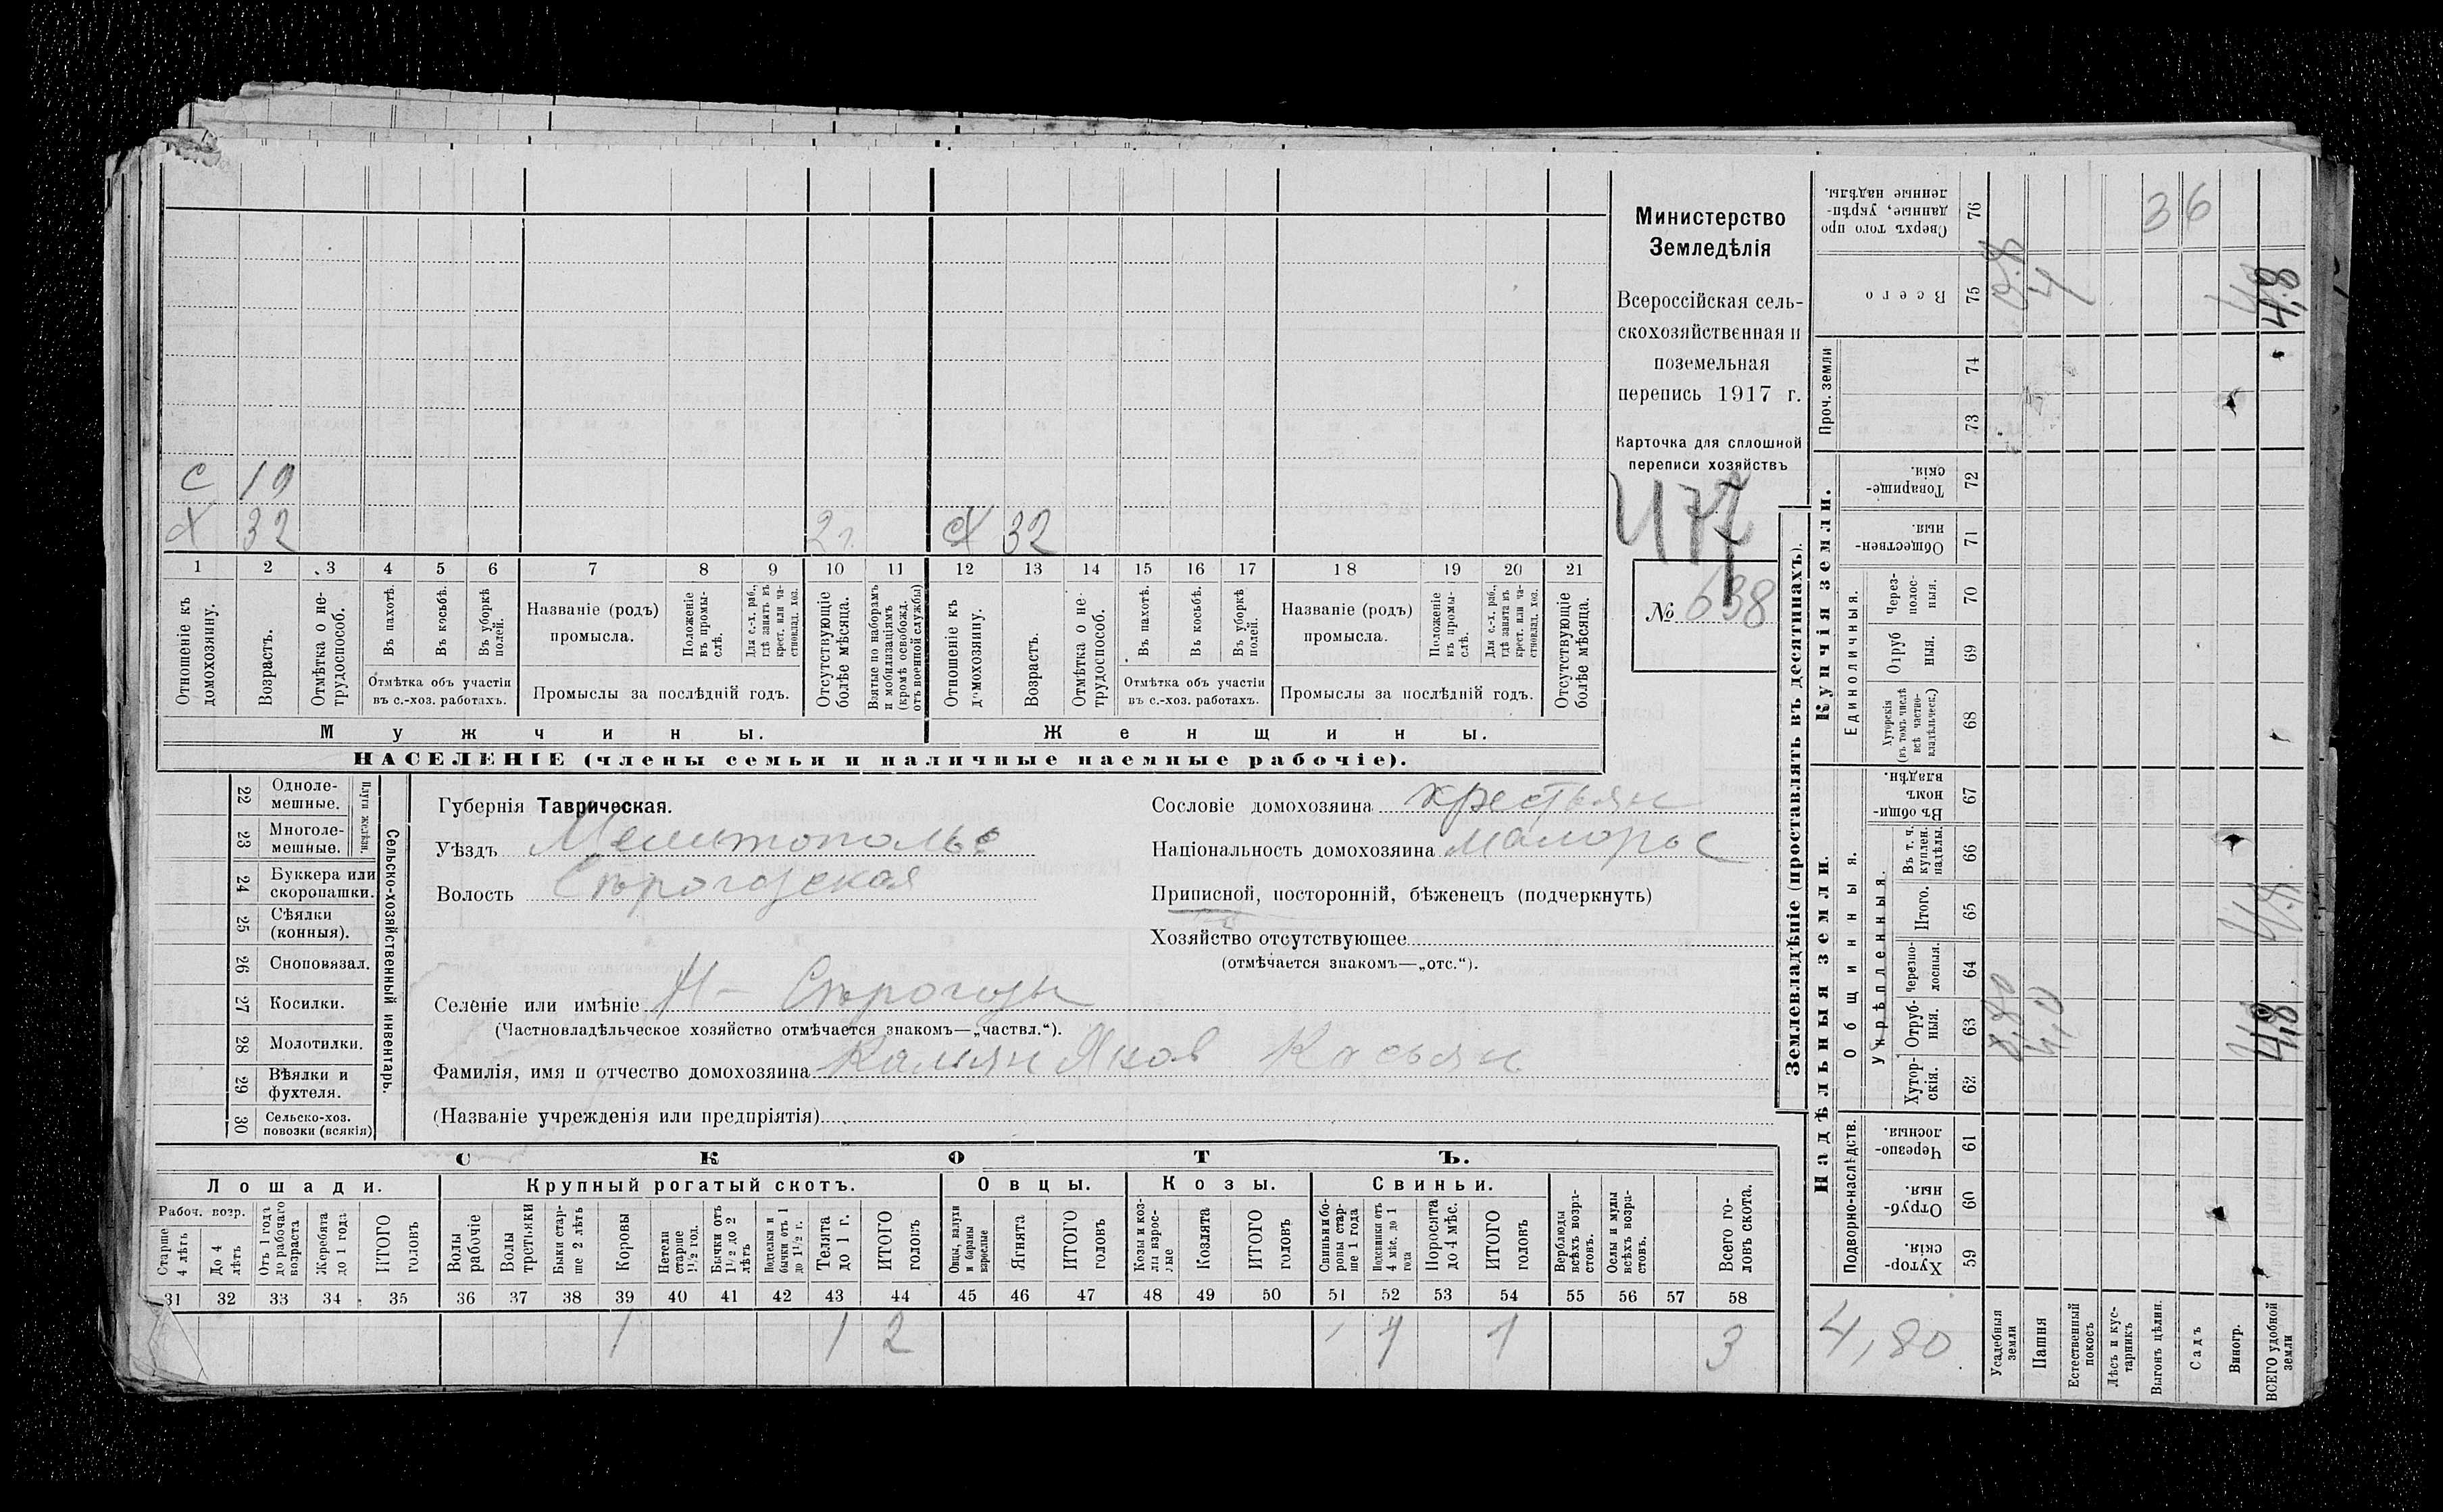 С 19
Х 32 2 г. Х 32
1 2 3 4 5 6 7 8 9 10 11 12 13 14 15 16 17 18 19 20 21
Отношеніе къ домохозяину.
Возрастъ.
Отмѣтка о не-трудоспособ.
Въ пахотѣ.
Въ косьбѣ.
Въ уборкѣ полей.
Отмѣтка объ участіи
въ с.-хоз. работахъ.
Названіе (родъ)
промысла.
Положеніе въ промы-слѣ.
Для с.-х. раб., гдѣ занятъ въ крест. или ча-стновлад. хоз.
Промыслы за послѣдній годъ.
Отсутствующіе болѣе мѣсяца.
Взятые по наборамъ и мобилизаціямъ (кромѣ освобожд. отъ военной службы)
Отношеніе къ домохозяину.
Возрастъ.
Отмѣтка о не-трудоспособ.
Въ пахотѣ.
Въ косьбѣ.
Въ уборкѣ полей.
Отмѣтка объ участіи
въ с.-хоз. работахъ.
Названіе (родъ)
промысла.
Положеніе въ промы-слѣ.
Для с.-х. раб., гдѣ занята въ крест. или ча-стновлад. хоз.
Промыслы за послѣдній годъ.
Отсутствующіе болѣе мѣсяца.
Мужчины.
Женщины.
НАСЕЛЕНІЕ (члены семьи и наличные наемные рабочіе).
Министерство
Земледѣлія
Всероссійская сель-
скохозяйственная и
поземельная
перепись 1917 г.
Карточка для сплошной
переписи хозяйствъ
477
№ 638
22 Одноле-мешные.
23 Многоле-мешные.
Плуги желѣзн.
24 Буккера или скоропашки.
25 Сѣялки (конныя).
26 Сноповязал.
27 Косилки.
28 Молотилки.
29 Вѣялки и фухтеля.
30 Сельско-хоз. повозки (всякія)
Сельско-хозяйственный инвентарь.
Губернія Таврическая.
Уѣздъ Мелитополь
Волость
Селеніе или имѣніе Н-
(Частновладѣльческое хозяйство отмѣчается знакомъ—„частвл.“).
Фамилія, имя и отчество домохозяина Яков Касьян
(Названіе учрежденія или предпріятія)
Сословіе домохозяина крестьян
Національность домохозяина малорос
Приписной, посторонній, бѣженецъ (подчеркнуть)
Хозяйство отсутствующее
(отмѣчается знакомъ—„отс.“).
СКОТЪ.
Лошади.
Рабоч. возр.
Старше 4 лѣтъ
До 4 лѣтъ
Отъ 1 года до рабочаго возраста
Жеребята до 1 года
ИТОГО головъ
Крупный рогатый скотъ.
Волы рабочіе
Волы третьяки
Быки стар-ше 2 лѣтъ
Коровы
Нетели старше 1½ год.
Бычки отъ 1½ до 2 лѣтъ
Подтелки и бычки отъ 1 до 1½ г.
Телята до 1 г.
ИТОГО головъ
Овцы.
Овцы, валухи и бараны взрослые
Ягнята
ИТОГО головъ
Козы.
Козы и коз-лы взрос-лые
Козлята
ИТОГО головъ
Свиньи.
Свиньи и бо-ровы стар-ше 1 года
Подсвинки отъ 4 мѣс. до 1 года
Поросята до 4 мѣс.
ИТОГО головъ
Верблюды всѣхъ возра-стовъ.
Ослы и мулы всѣхъ возра-стовъ.
Всего го-ловъ скота.
31 32 33 34 35 36 37 38 39 40 41 42 43 44 45 46 47 48 49 50 51 52 53 54 55 56 57 58
1 1 2 1 1 3
Землевладѣніе (проставлять въ десятинахъ).
Сверхъ того про данные, укрѣп-ленные надѣлы. 76 36
Всего 75 0.8 4 4.8
Проч. земли
74
73
Купчія земли.
Товарище-скія. 72
Обществен-ныя. 71
Единоличныя.
Через-полос-ныя. 70
Отруб ныя. 69
Хуторскія (въ томъ числѣ всѣ частно-владѣльческ.) 68
Надѣльныя земли.
Общинныя.
Въ общин-номъ владѣн. 67
Укрѣпленныя.
Въ т. ч. куплен. надѣлы. 66
Итого. 65
Черезпо-лосныя. 64
Отруб-ныя. 63 0.80 4,0 4,8
Хутор-скія. 62
Подворно-наслѣдств.
Черезпо-лосныя 61
Отруб-ныя. 60
Хутор-скія. 59
4,80
Усадебныя земли
Пашня
Естественный покосъ
Лѣсъ и кус-тарникъ
Выгонъ цѣлин.
Садъ
Виногр.
ВСЕГО удобной земли